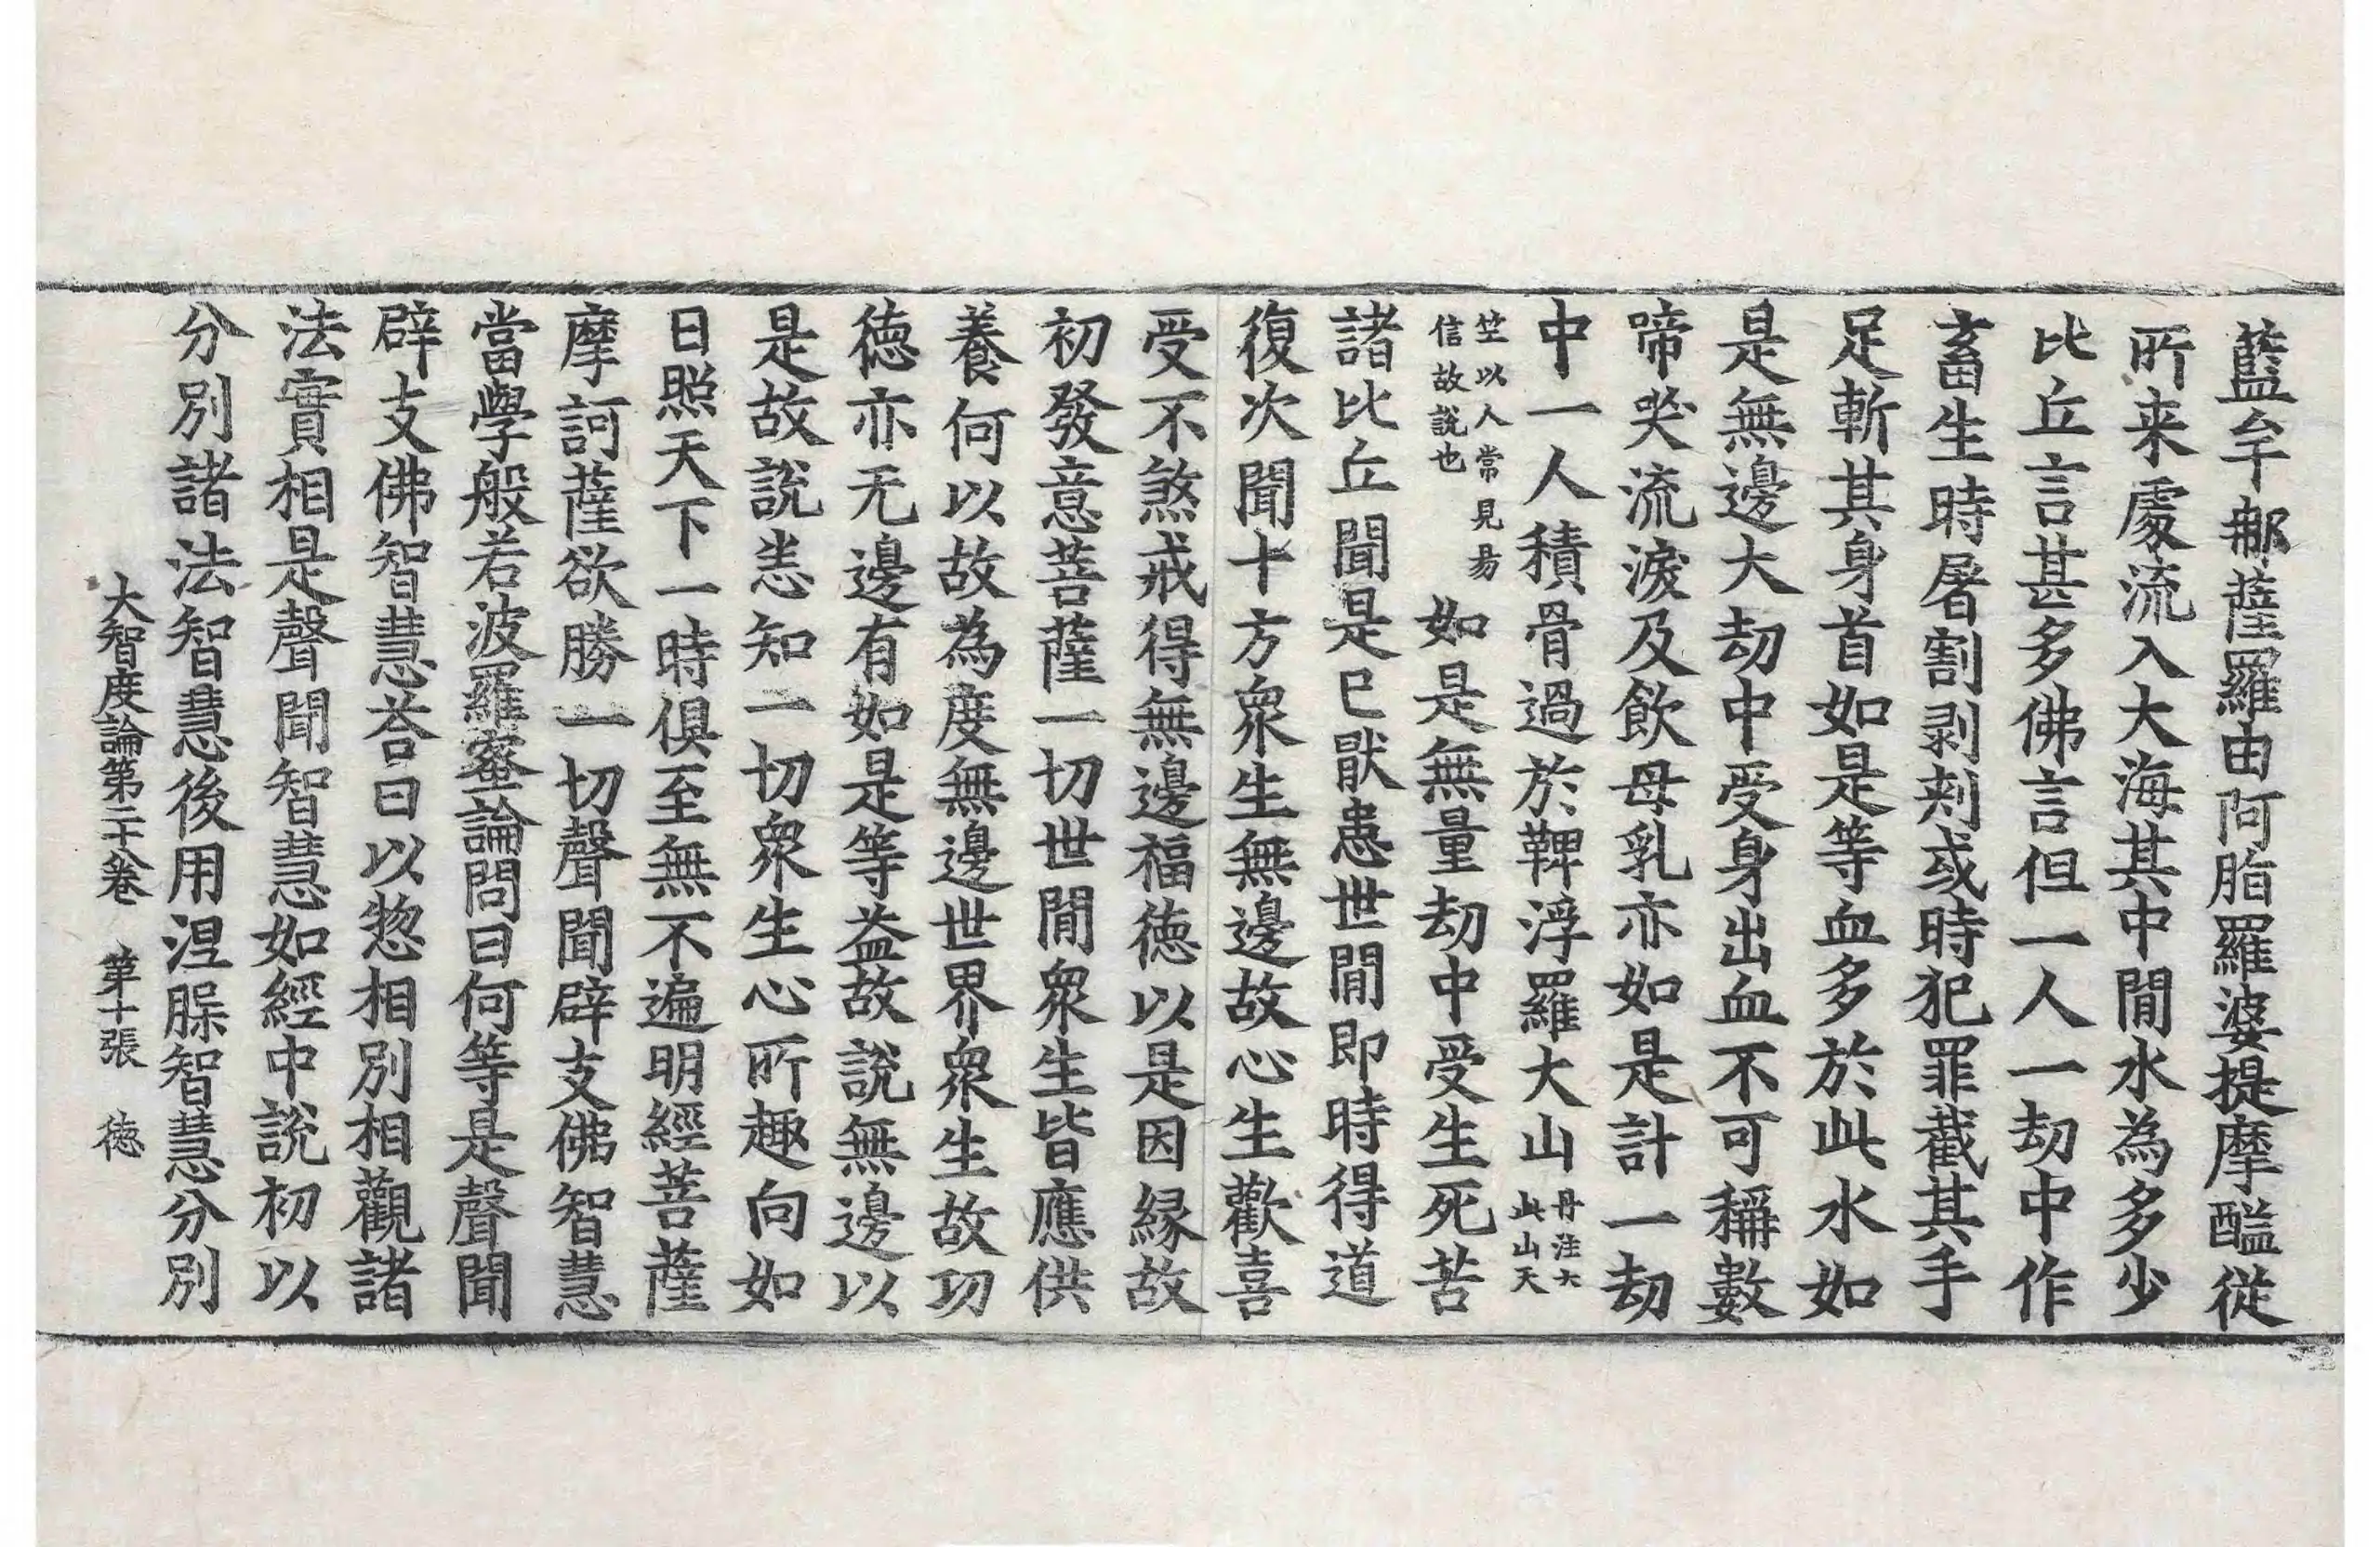 藍牟那薩羅由阿脂羅婆提摩醯從
所来處流入大海其中閒水為多少
比丘言甚多佛言但一人一劫中作
畜生時屠割剥刺或時犯罪截其手
足斬其身首如是等血多於此水如
是無邊大劫中受身出血不可稱數
啼哭流淚及飲母乳亦如是計一劫
中一人積骨過於鞞浮羅大山丹注大此山天
竺以人常見易信故說也如是無量劫中受生死苦
諸比丘聞是已猒患世閒即時得道
復次聞十方衆生無邊故心生歡喜
受不煞戒得無邊福德以是因緣故
初發意菩薩一切世閒衆生皆應供
養何以故為度無邊世界衆生故功
德亦无邊有如是等益故說無邊以
是故說恙知一切衆生心所趣向如
日照天下一時俱至無不遍明經菩薩
摩訶薩欲勝一切聲聞辟支佛智慧
當學般若波羅蜜論問曰何等是聲聞
辟支佛智慧荅曰以惣相別相觀諸
法實相是聲聞智慧如經中說初以
分別諸法智慧後用涅槃智慧分別
大智度論第二十卷 第十張 德